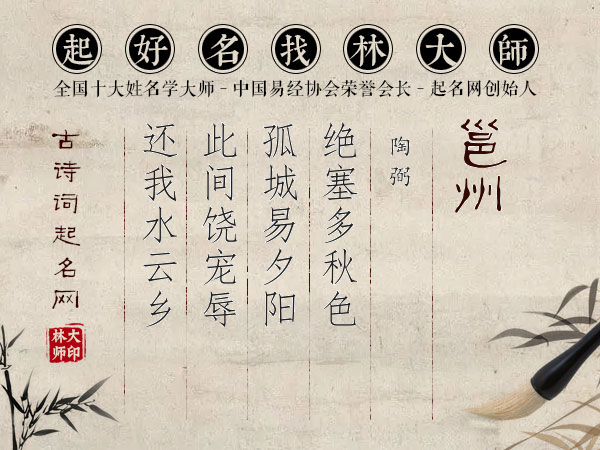 起好名找林大師
全国十大姓名学大师 - 中国易经协会荣誉会长 - 起名网创始人
邕州
陶弼
绝塞多秋色
孤城易夕阳
此间饶宠辱
还我水云乡
古诗词起名网
大印
林师